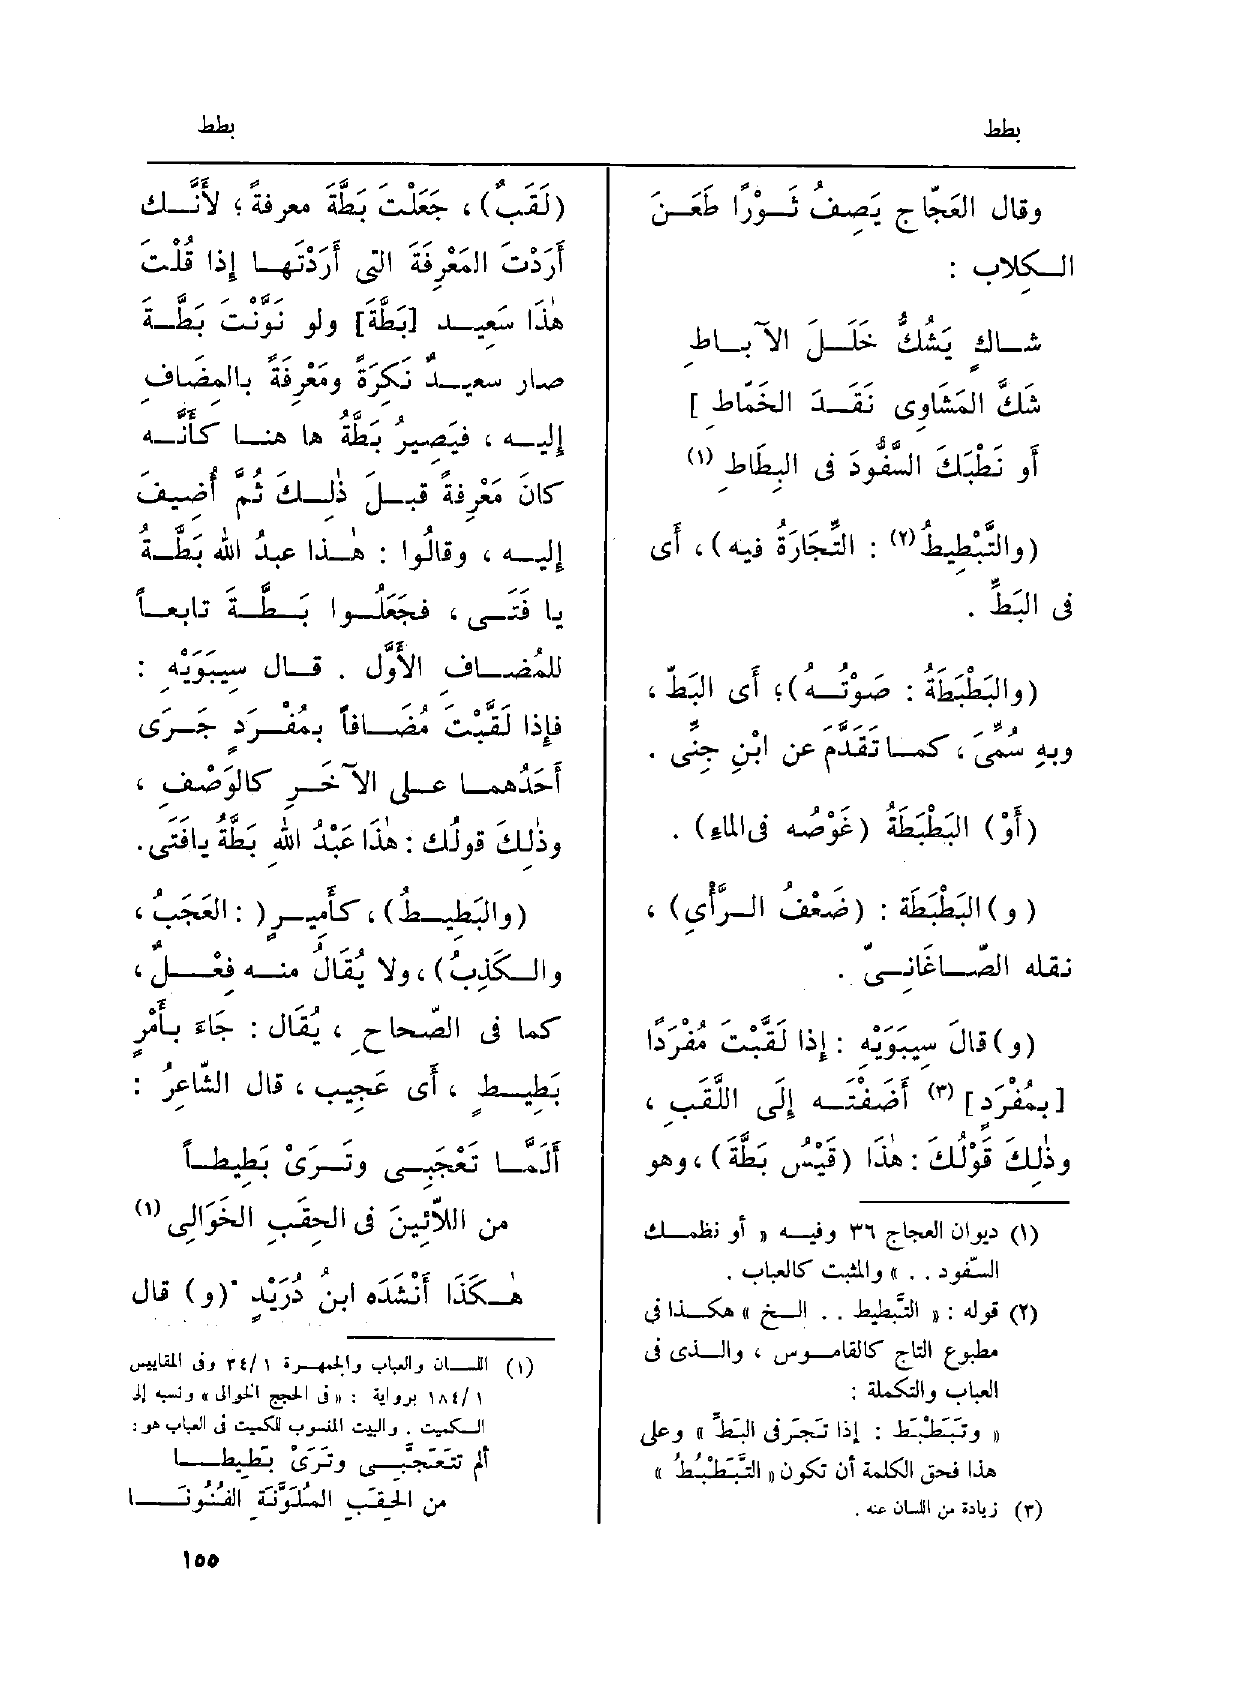 بطط
بطط
وقال العَجّاج يَصِفُ ثَـوْرًا طَعَـنَ
الـكِلاب :
شـاكٍ يَشُكُّ خَلَـلَ الآبـاطِ
شَكَّ المَشَاوِى نَقَـدَ الخَمّاطِ ]
أو نَطْبَكَ السَّفُّودَ فى البِطَاطِ (١)
(والتَّبْطِيطُ(٢) : التِّجَارَةُ فيه)، أَى
فى البَطِّ .
(والبَطْبَطَةُ : صَوْتُـه)؛ أَى البَطّ ،
وبهِ سُمِّىَ ، كمـا تَقَدَّمَ عن ابْنِ جِنِّى .
(أَوْ) البَطْبَطَةُ (غَوْصُه فى الماءِ) .
(و) البَطْبَطَة : (ضَعْفُ الـرَّأْيِ) ،
نقله الصّـاغَانِـىّ .
(و) قالَ سِيبَوَيْهِ : إذا لَقَّبْتَ مُفْرَدًا
[بمُفْرَدٍ] (٣) أَضَفْتَـه إلَى اللَّقَبِ ،
وذٰلِكَ قَوْلُكَ : هٰذا (قَيْسُ بَطَّةَ)، وهو
(١) ديوان العجاج ٣٦ وفيـه « أو نظمـك
السّفود . . » والمثبت كالعباب .
(٢) قوله : « التَّبطيط . . الـخ » هكـذا فى
مطبوع التاج كالقامـوس ، والـذى فى
العباب والتكملة :
« وتَبَطْبَطَ : إذا تَجَرَ فى البَطِّ » وعلى
هذا فحق الكلمة أن تكون « التَّبَطْبُطُ »
(٣) زيادة من اللسان عنه .
(لَقَبٌ)، جَعَلْتَ بَطَّةَ معرفةً ؛ لأَنَّـك
أَرَدْتَ المَعْرِفَةَ التى أَرَدْتَهـا إذا قُلْتَ
هٰذَا سَعِيـد [بَطَّةَ] ولو نَوَّنْتَ بَطَّـةَ
صار سعيـدٌ نَكِرَةً ومَعْرِفَةً بالمِضَافِ
إليـه ، فيَصِيرُ بَطَّةُ ها هنـا كأَنَّـه
كانَ مَعْرِفةً قبـلَ ذٰلِـكَ ثُمَّ أُضِيفَ
إليـه ، وقالُوا : هٰـذا عبدُ الله بَطَّـةُ
يا فَتَـى ، فجَعَلُـوا بَـطَّـةَ تابعـاً
للمُضـافِ الأَوَّل . قـال سِيبَوَيْهِ :
فإذا لَقَّبْتَ مُضَـافاً بمُفْـرَدٍ جَـرَى
أَحَدُهمـا عـلى الآخَـرِ كالوَصْفِ ،
وذٰلكَ قولُك : هٰذَا عَبْدُ اللهِ بَطَّةُ يافَتَى .
(والبَطِيـطُ)، كأَمِيـرٍ( : العَجَبُ ،
والـكَذِبُ)، ولا يُقَالُ منـه فِعْـلٌ ،
كما فى الصّحاحِ ، يُقَال : جَاءَ بأَمْرٍ
بَطِيـطٍ ، أَى عَجِيب ، قال الشّاعِرُ :
أَلَمَّـا تَعْجَبِـى وتَـرَىْ بَطِيطـاً
من اللاّئِينَ فى الحِقَبِ الخَوَالِى (١)
هٰـكَذَا أَنْشَدَه ابنُ دُرَيْدٍ .(و) قال
(١) اللسـان والعباب والجمهـرة ٣٤/١ وفى المقاييس
١٨٤/١ برواية : « فى الحجج الخوالى » ونسبه إلى
الـكميت . والبيت المنسوب للكميت فى العباب هو :
ألم تتَعَجَّبِـى وتَرَىْ بَطِيطـا
من الحِقَبِ المُلَوَّنَةِ الفُنُونَـا
١٥٥